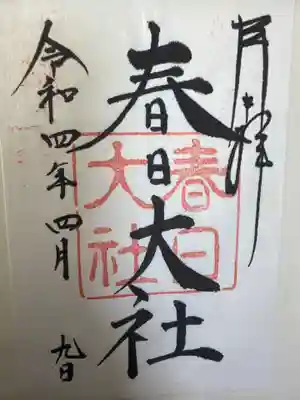 月拝
春日大社
春日
大社
令和四年四月九日